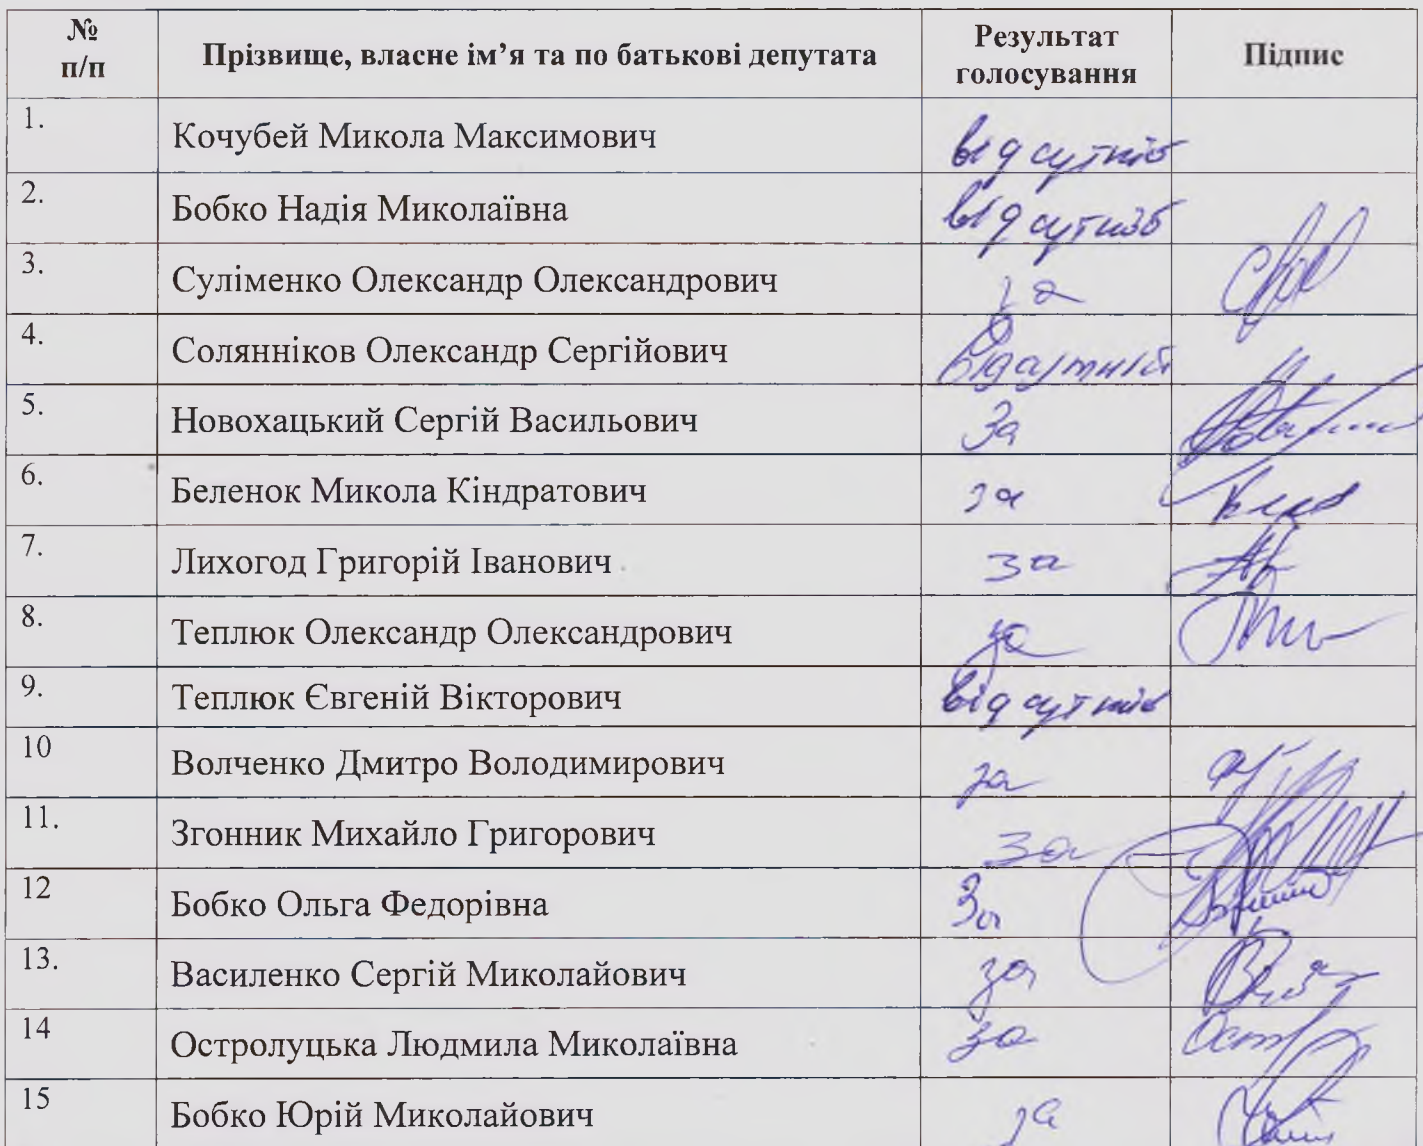 № п/п Прізвище, власне ім’я та по батькові депутата Результат голосування Підпис
1. Кочубей Микола Максимович відсутній
2. Бобко Надія Миколаївна відсутній
3. Суліменко Олександр Олександрович за
4. Солянніков Олександр Сергійович Відсутній
5. Новохацький Сергій Васильович За
6. Беленок Микола Кіндратович за
7. Лихогод Григорій Іванович за
8. Теплюк Олександр Олександрович за
9. Теплюк Євгеній Вікторович відсутній
10 Волченко Дмитро Володимирович за
11. Згонник Михайло Григорович за
12 Бобко Ольга Федорівна За
13. Василенко Сергій Миколайович за
14 Остролуцька Людмила Миколаївна за
15 Бобко Юрій Миколайович за